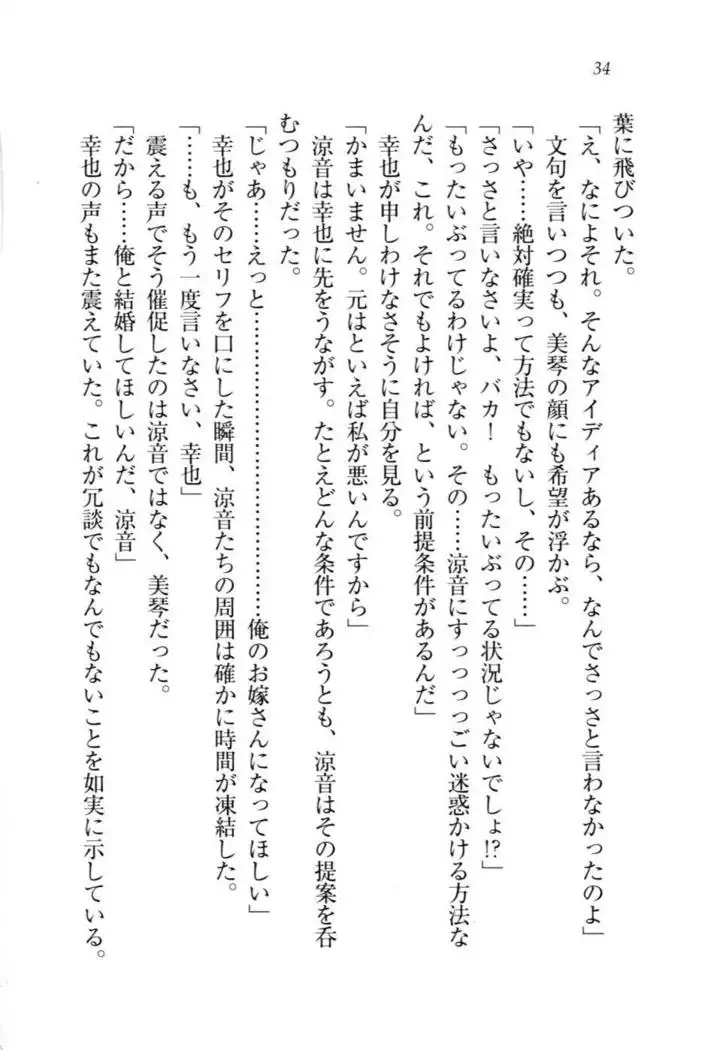 34
葉に飛びついた。
「え、なによそれ。そんなアイディアあるなら、なんでさっさと言わなかったのよ」
文句を言いつつも、美琴の顔にも希望が浮かぶ。
「いや……絶対確実って方法でもないし、その……」
「さっさと言いなさいよ、バカ！　もったいぶってる状況じゃないでしょ!?」
「もったいぶってるわけじゃない。その……涼音にすっっっっごい迷惑かける方法な
んだ、これ。それでもよければ、という前提条件があるんだ」
幸也が申しわけなさそうに自分を見る。
「かまいません。元はといえば私が悪いんですから」
涼音は幸也に先をうながす。たとえどんな条件であろうとも、涼音はその提案を呑
むつもりだった。
「じゃあ……えっと…………………………………俺のお嫁さんになってほしい」
幸也がそのセリフを口にした瞬間、涼音たちの周囲は確かに時間が凍結した。
「……も、もう一度言いなさい、幸也」
震える声でそう催促したのは涼音ではなく、美琴だった。
「だから……俺と結婚してほしいんだ、涼音」
幸也の声もまた震えていた。これが冗談でもなんでもないことを如実に示している。